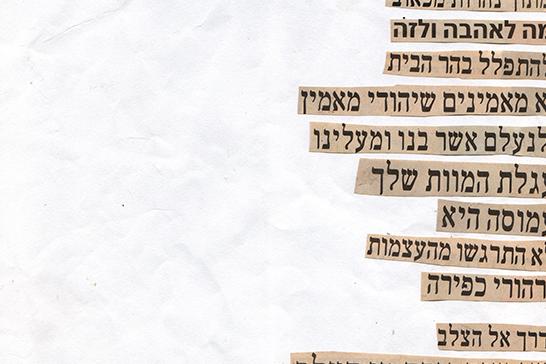 מה לאהבה ולזה
להתפלל בהר הבית
מאמינים שיהודי מאמין
לנעלם אשר בנו ומעלינו
עגלת המוות שלך
עמוסה היא
לא התרגשו מהעצמות
הרהורי כפירה
דרך אל הצלב